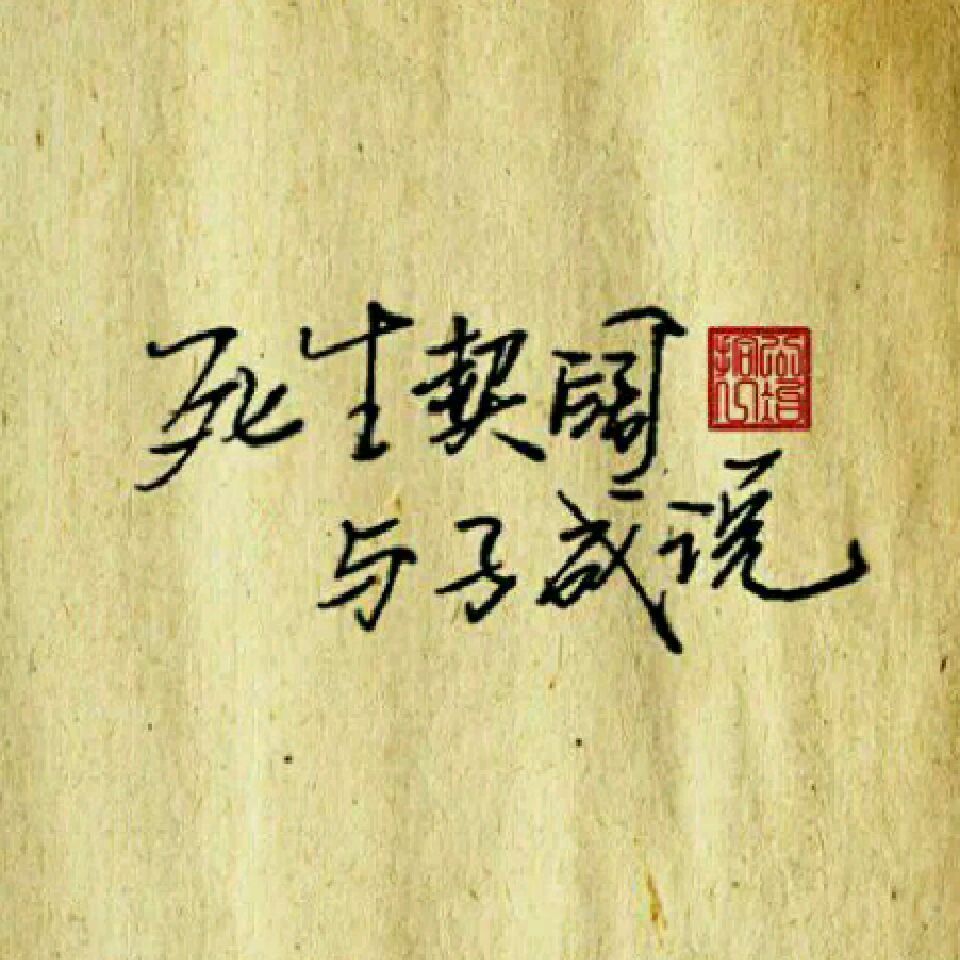 死生契阔
与子成说